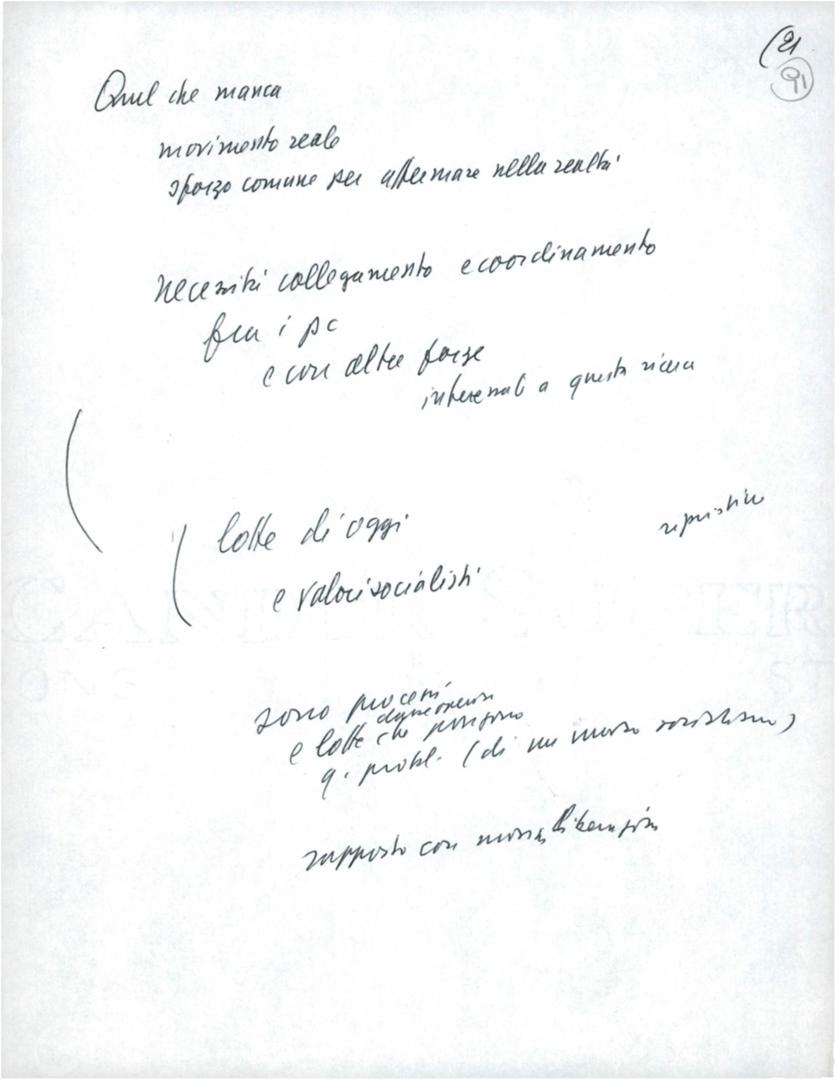 (21
91
Quel che manca
movimento reale
sforzo comune per affermare nella realtà
necessità collegamento e coordinamento
fra i pc
e con altre forze
interessate a questa ricerca
lotte di oggi
e valori socialisti
sono processi
e lotte che pongono
q. probl. (di un nuovo socialismo)
rapporto con liberazione